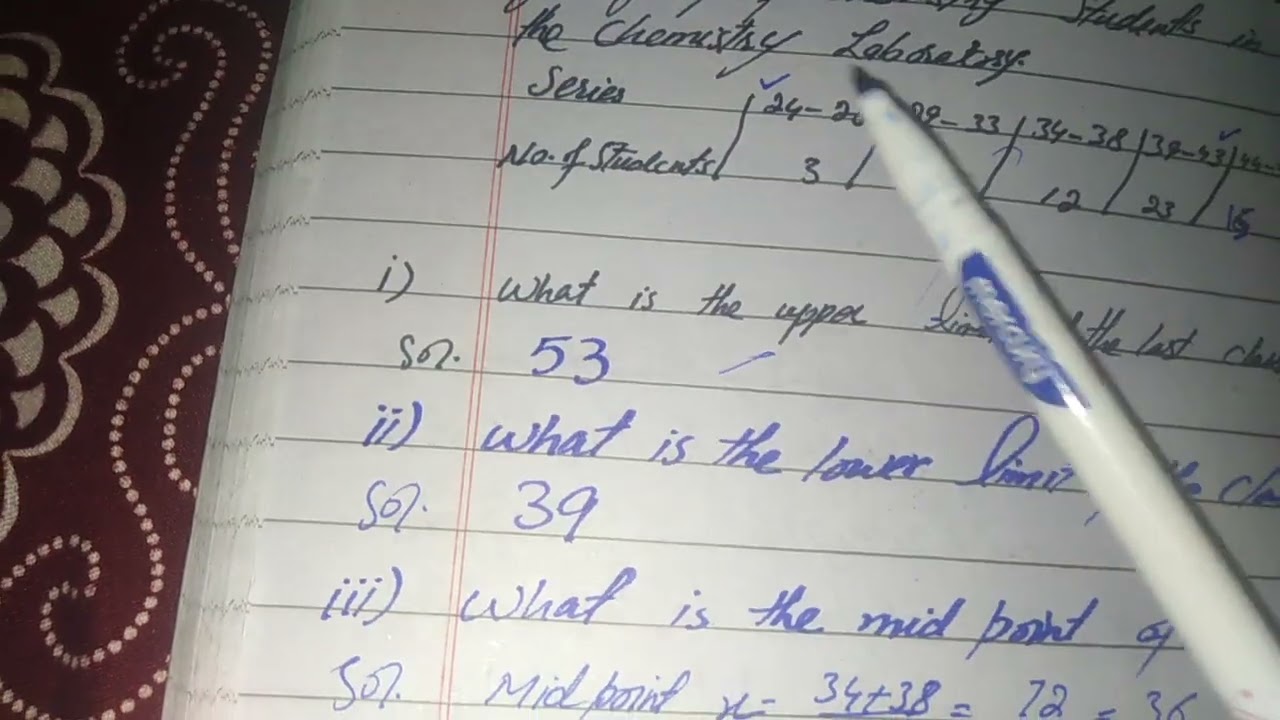 Students in
the Chemistry Laboratry.
Series 24- 29-33 34-38 39-43 44-
No. of Students 3 12 23 15
i) What is the upper the last
Sol. 53
ii) What is the lower limit
Sol. 39
iii) What is the mid point of
Sol. Mid point x = 34+38 = 72 = 36